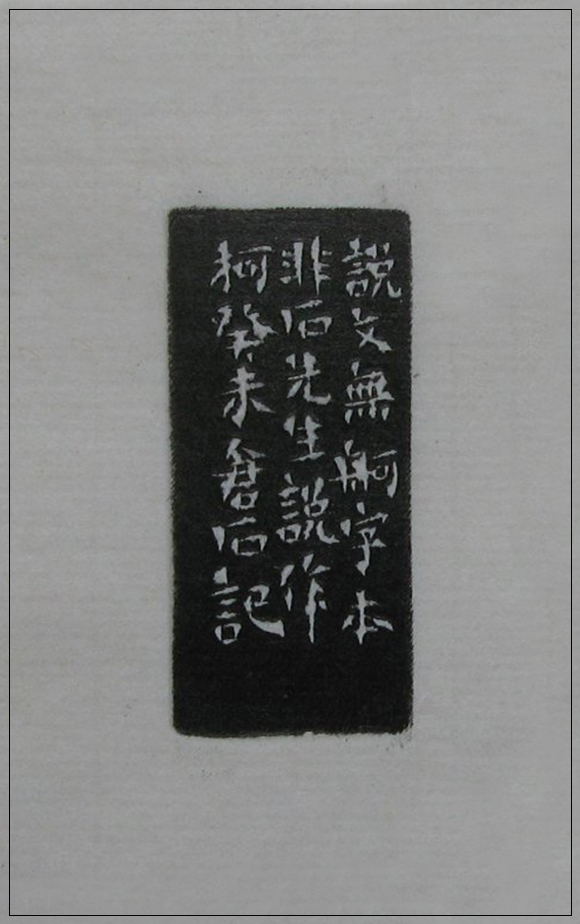 說文無舸字本
非石先生說作
柯癸未倉石記